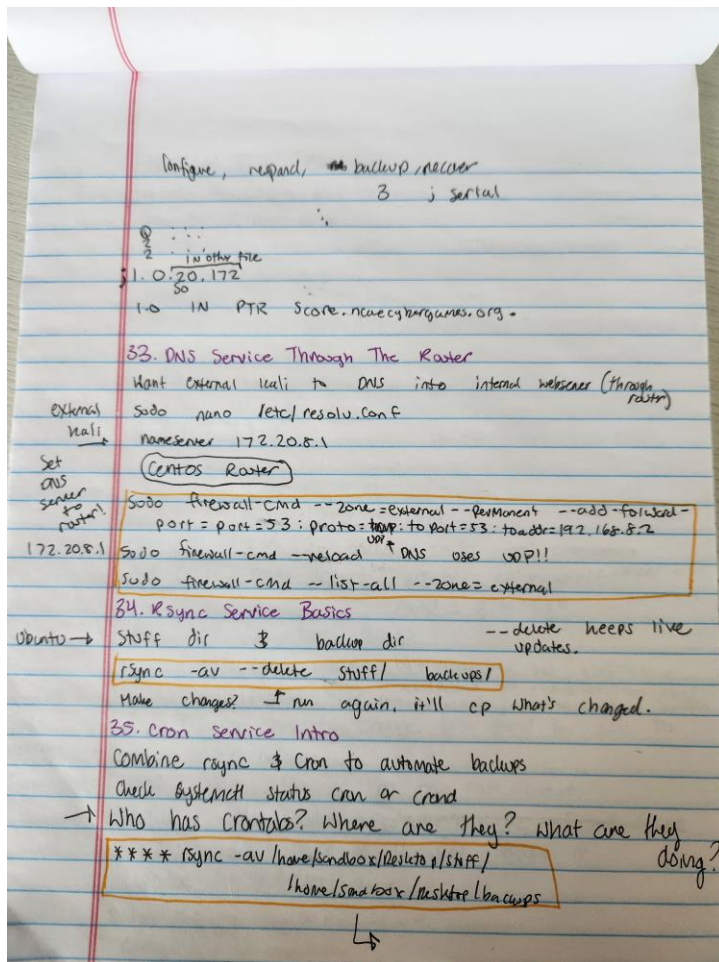 Configure, respond, backup, recover
3 ; serial
@ . . .
2
2 . . .
in other file
;1.0.20.172
so
1.0 IN PTR Score.ncaecybergames.org.
33. DNS Service Through The Router
Want external kali to DNS into internal webserver (through router)
external kali →
Sudo nano /etc/resolv.conf
nameserver 172.20.8.1
Set DNS server to router!
172.20.8.1
Centos Router
Sudo firewall-cmd --zone=external --permanent --add-forward-
port=port=53:proto=tcp:toport=53:toaddr=192.168.8.2
UDP ↑ DNS uses UDP!!
Sudo firewall-cmd --reload
Sudo firewall-cmd --list-all --zone=external
34. Rsync Service Basics
Ubuntu → Stuff dir & backup dir
--delete keeps live updates.
rsync -av --delete stuff/ backups/
Make changes? ↑ run again, it'll cp what's changed.
35. Cron Service Intro
Combine rsync & Cron to automate backups
Check systemctl status cron or crond
→ Who has crontabs? Where are they? What are they doing?
**** rsync -av /home/sandbox/Desktop/stuff/
/home/sandbox/Desktop/backups